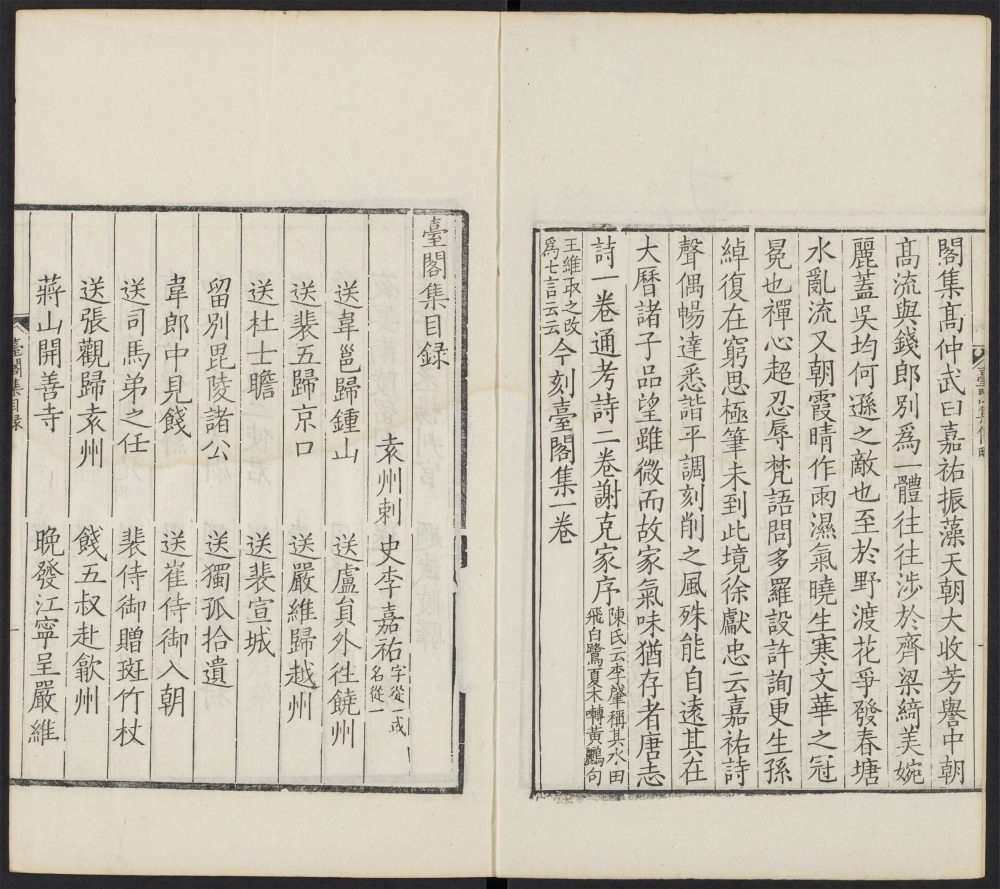 閣集高仲武曰嘉祐振藻天朝大收芳譽中朝
髙流與錢郎別爲一體往往涉於齊梁綺美婉
麗蓋吴均何遜之敵也至於野渡花爭發春塘
水亂流又朝霞晴作雨濕氣曉生寒文華之冠
冕也禪心超忍辱梵語問多羅設許詢更生孫
綽復在窮思極筆未到此境徐獻忠云嘉祐詩
聲偶暢達悉諧平調刻削之風殊能自遠其在
大曆諸子品望雖微而故家氣味猶存者唐志
詩一卷通考詩二卷謝克家序陳氏云李肇稱其水田飛白鷺夏木囀黃鸝句
王維取之改爲七言云云今刻臺閣集一卷
臺閣集目録
袁州刺史李嘉祐字從一或名從一
送韋邕歸鍾山 送盧負外徃饒州
送裴五歸京口 送嚴維歸越州
送杜士瞻 送裴宣城
留别毘陵諸公 送獨孤拾遺
韋郎中見餞 送崔侍御入朝
送司馬弟之任 裴侍御贈斑竹杖
送張觀歸袁州 餞五叔赴歙州
蔣山開善寺 晚發江寧呈嚴維
臺閣集目録
一